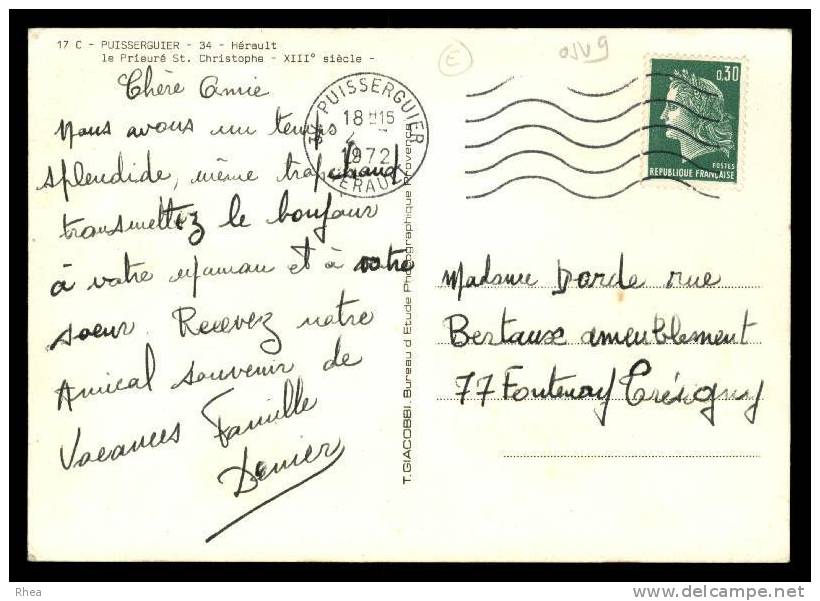 17 C - PUISSERGUIER - 34 - Hérault
le Prieuré St. Christophe - XIII° siècle -
Chère Amie
Nous avons un temps
splendide, même trop chaud
transmettez le bonjour
à votre maman et à votre
soeur. Recevez notre
Amical souvenir de
Vacances Famille
Denier
34 PUISSERGUIER
18 H15
1972
HERAULT
T. GIACOBBI. Bureau d Etude Photographique Provence
E
0,30
POSTES
REPUBLIQUE FRANÇAISE
Madame Dorde rue
Bertaux ameublement
77 Fontenay Trésigny
Rhea
www.delcampe.net